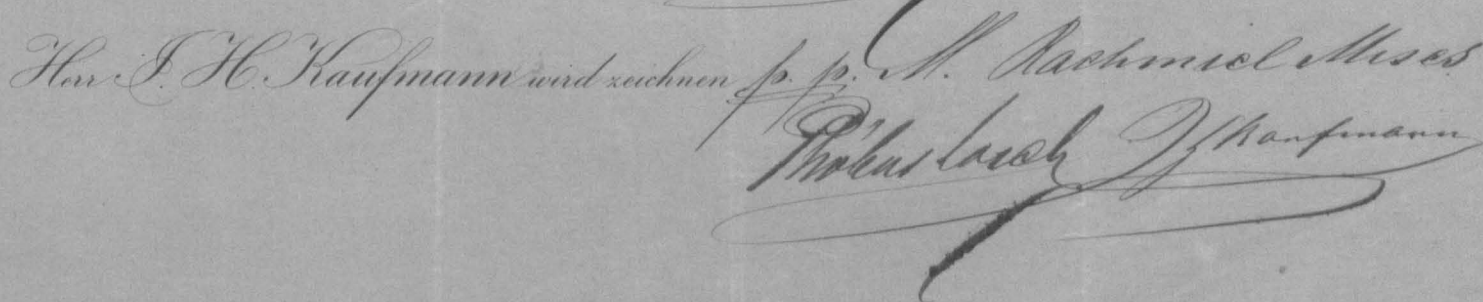 Herr J. H. Kaufmann wird zeichnen p. p. M. Rachmiel Mises
Phöbus Losch JHKaufmann